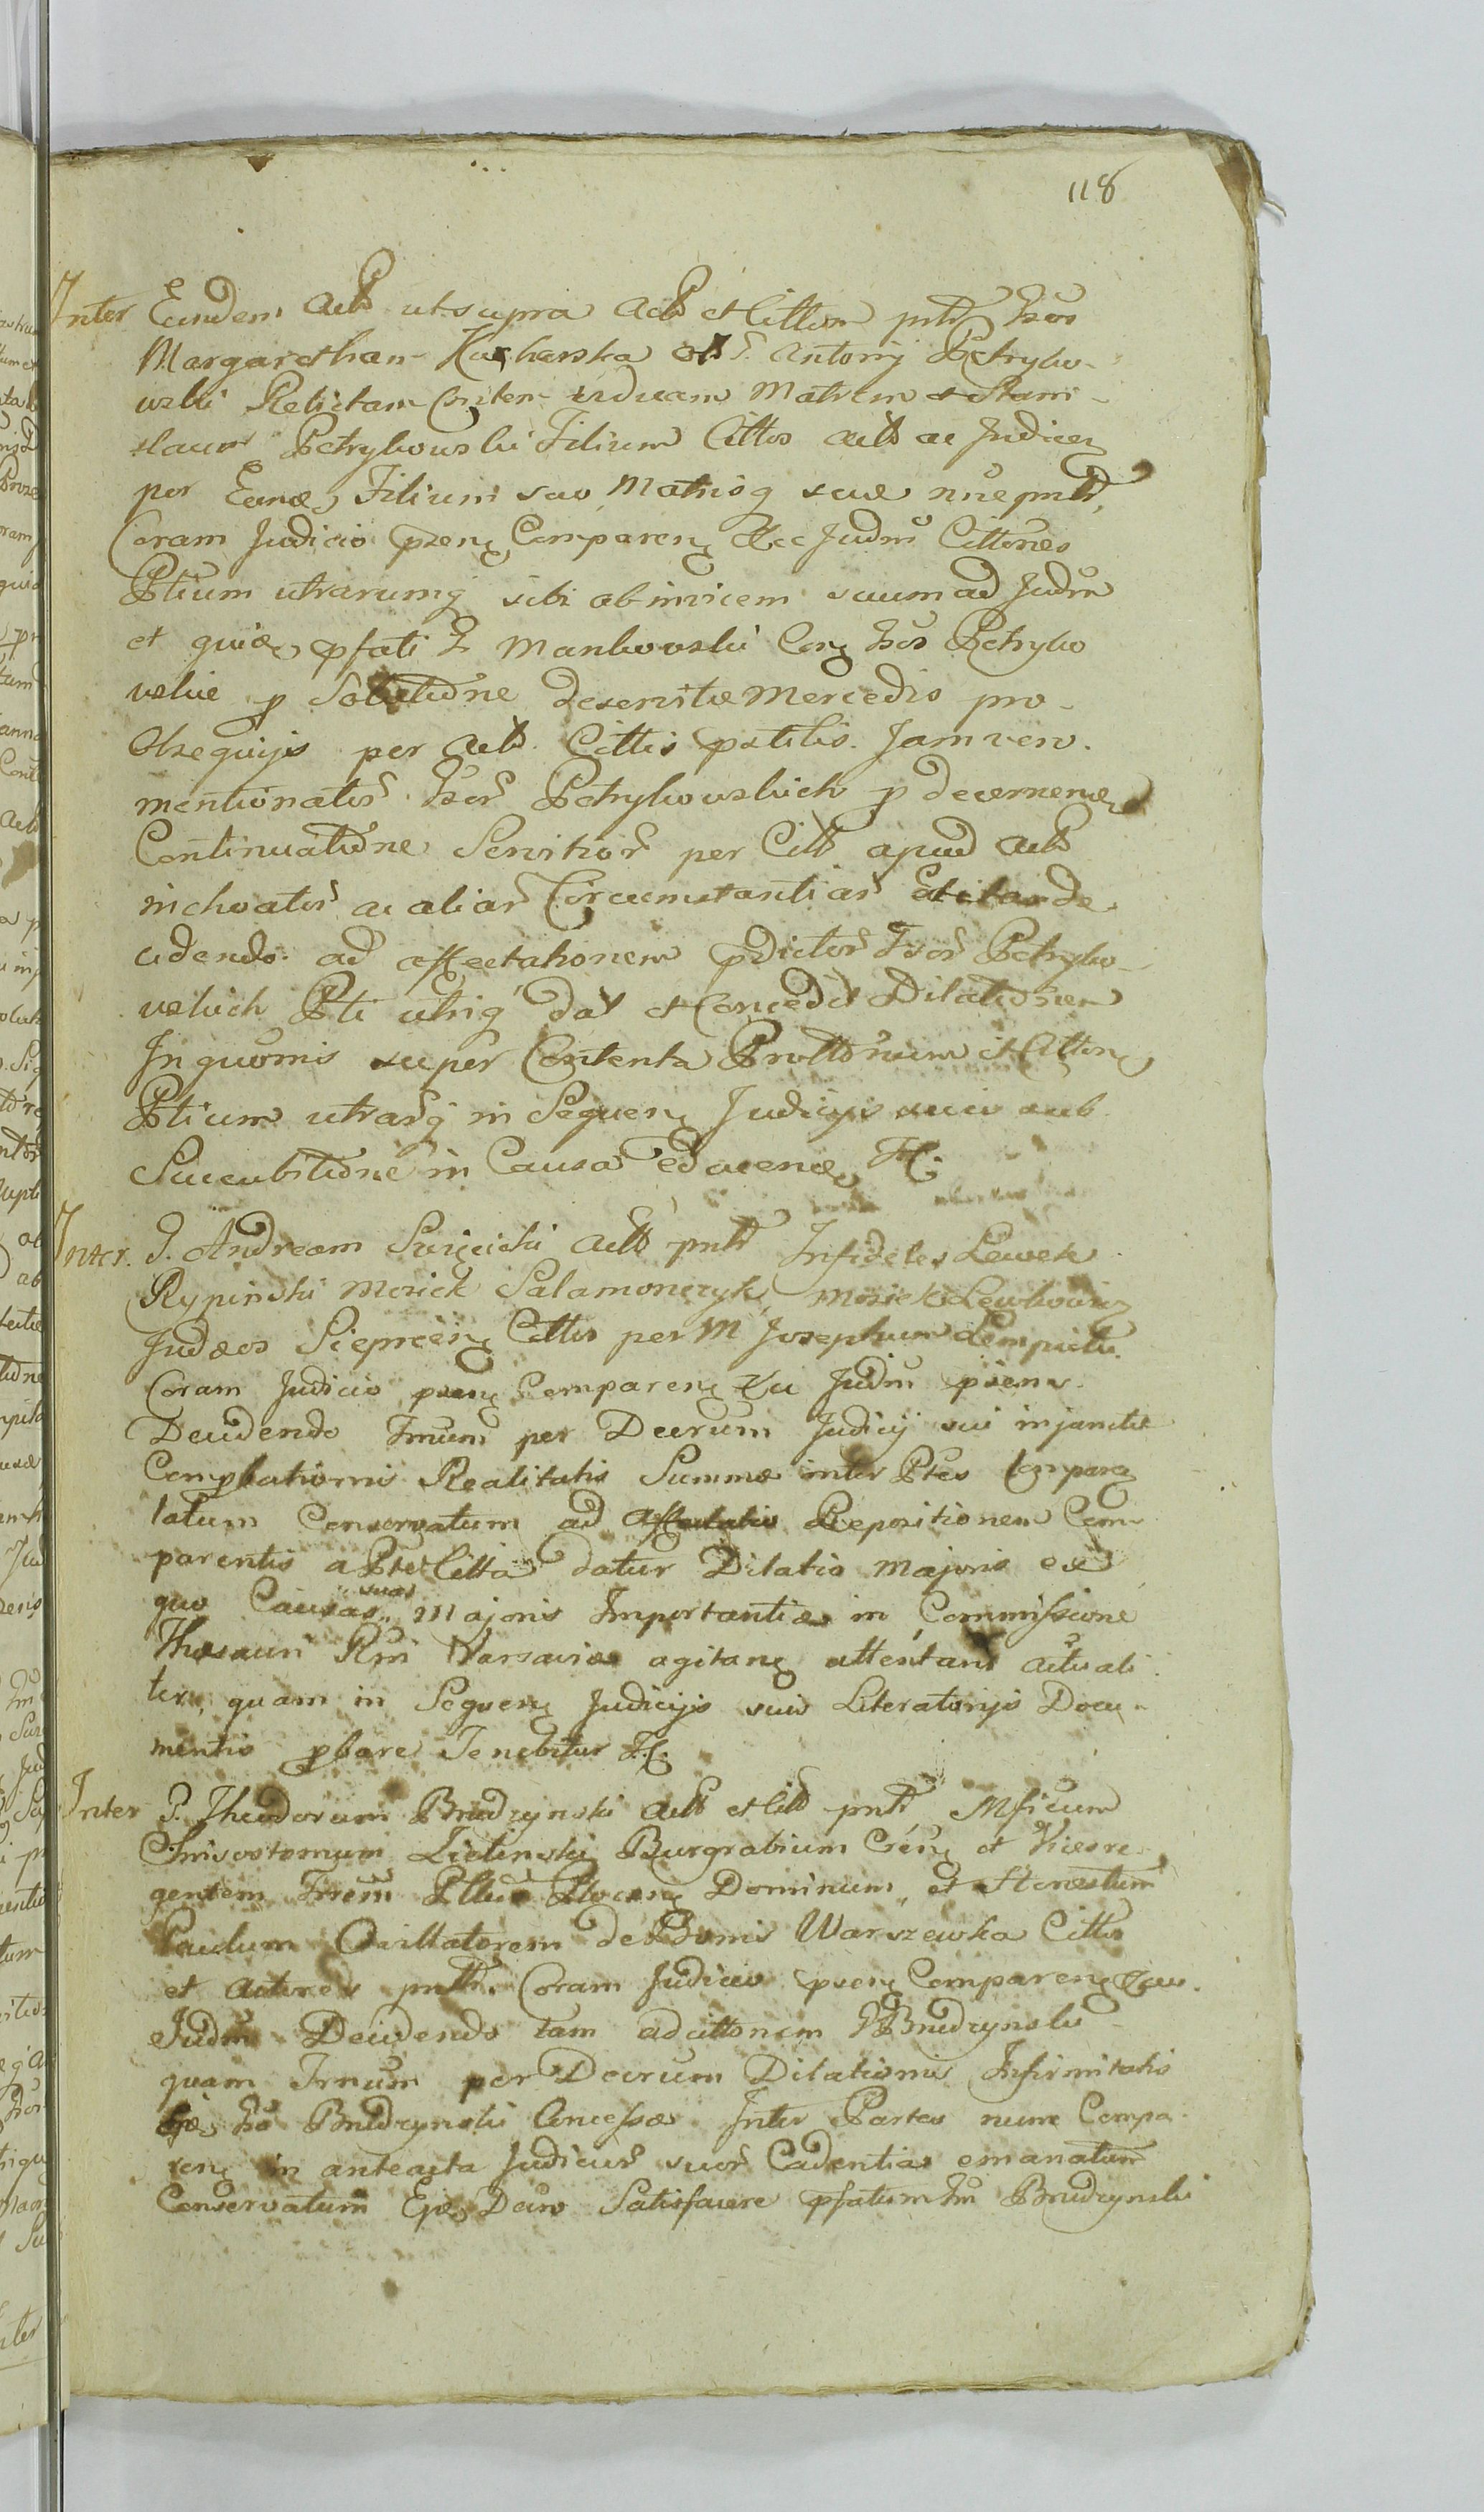 118
Inter Eundem Actb ut supra Actb et Citton pntb Gsos
Margarethan Kucharska olb G. Antonij Petryko-
wski Relictam viduam Matrem et Stani-
slaum Petrykowski Filium Cittos actb ac Judicen
per Eund Filium suo Matrisq suæ nne pntb
Coram Judicio præn Comparen Hec Judm Cittones
Ptium utrarumq sibi ab invicem suum ad Judm
et quid pfati G Mankowski Con Gsos Petryko
wskie p Solutione deservitæ Mercedis pro-
Obsequijs per actb Cittis pstitis. Jam vero.
mentionator Gsor Petrykowskich p decernen
Continuatione Servitior per Citt apud actb
inchoator ac aliar Circumstantiar
cidendo ad affectationem pdictor Gsor Petryko-
wskich Pti utriq dat et Concedit Dilationem
Inquomis super Contenta Prottonum et Citton
Ptium utrarq in Sequen Judicijs suis sub
Succubitione in Causa educen H.
Inter. G. Andream actb pntb Infideles Lewek
Rypinski Mosiek Salamonczyk, Mosiek Lewkowicz
Judæos Sieprcen Cittos per M Josephum Lempicki
Coram Judicio præn Comparen Hec Judm præns.
Decidendo Trnum per Decrum Judicij sui injunctæ
Comprobationis Realitatis Summæ inter Ptes Compare
latum Conservatum ad Repositionem Com-
parentis a Pte Citta datur Dilatio Majoris ex
quo Causas suas Majoris Importantiæ in Commissione
Thesauri Rni Varsaviæ agitan attentant actuali
ter, quam in Sequen Judicijs suis Literatorijs Docu-
mentis pbare Tenebitur H.
Inter G. Theodorum Brudzynski actb et Citt pntb Mficum
Chrisostomum Zielinski Burgrabium Cren et Vicere-
gentem Trrem Pllus Plocen Dominum, et Honestum
Paulum Owillatorem de Bonis Warszewka Cittos
et Actores pntb. Coram Judicio præn Comparen Hec
Judm Decidendo tam ad cittonem G Brudzynski
quam Trnum per Decrum Dilationis Infirmitatis
Ejs Gso Brudzynski Concessæ Inter Partes nunc Compa
ren in anteacta Judicior suor Cadentia emanatum
Conservatum Ejs Decro Satisfacere pfatum Gm Brudzynski